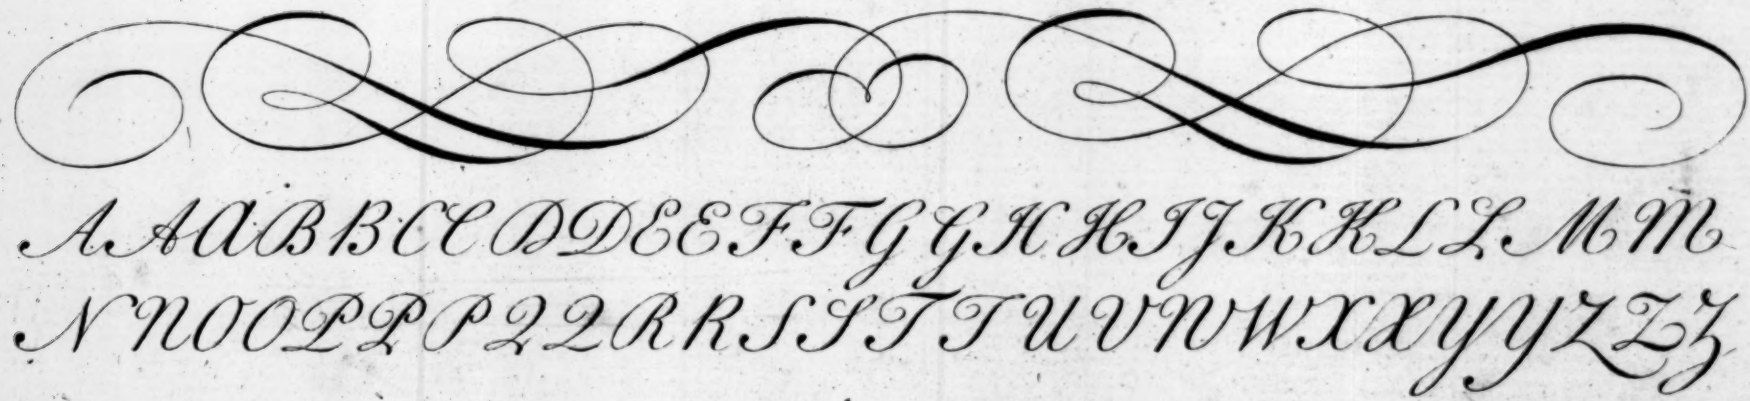 A A A B B C C D D E E F F G G H H I J K K L L M M
N N O O P P P Q Q R R S S T T U V W W X X Y Y Z Z Z